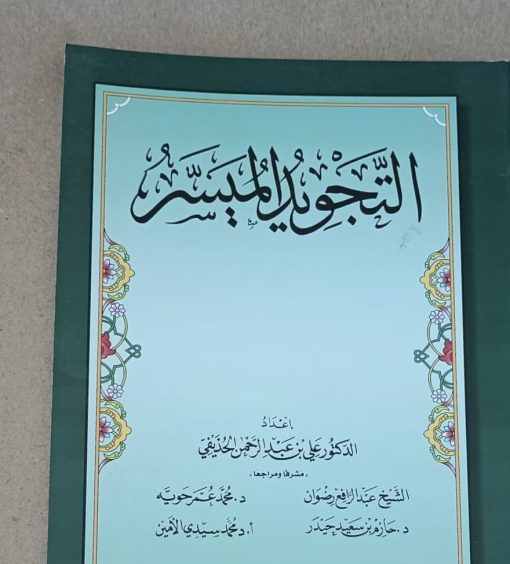 التَّجْوِيدُ الْمُيَسَّرُ
إعْدَادُ
الدكتور علي بن عبد الرحمن الحذيفي
«مشرفا ومراجعا»
الشيخ عبد الرافع رضوان د. محمد عمر حويه
د. حازم بن سعيد حيدر أ.د محمد سيدي الأمين